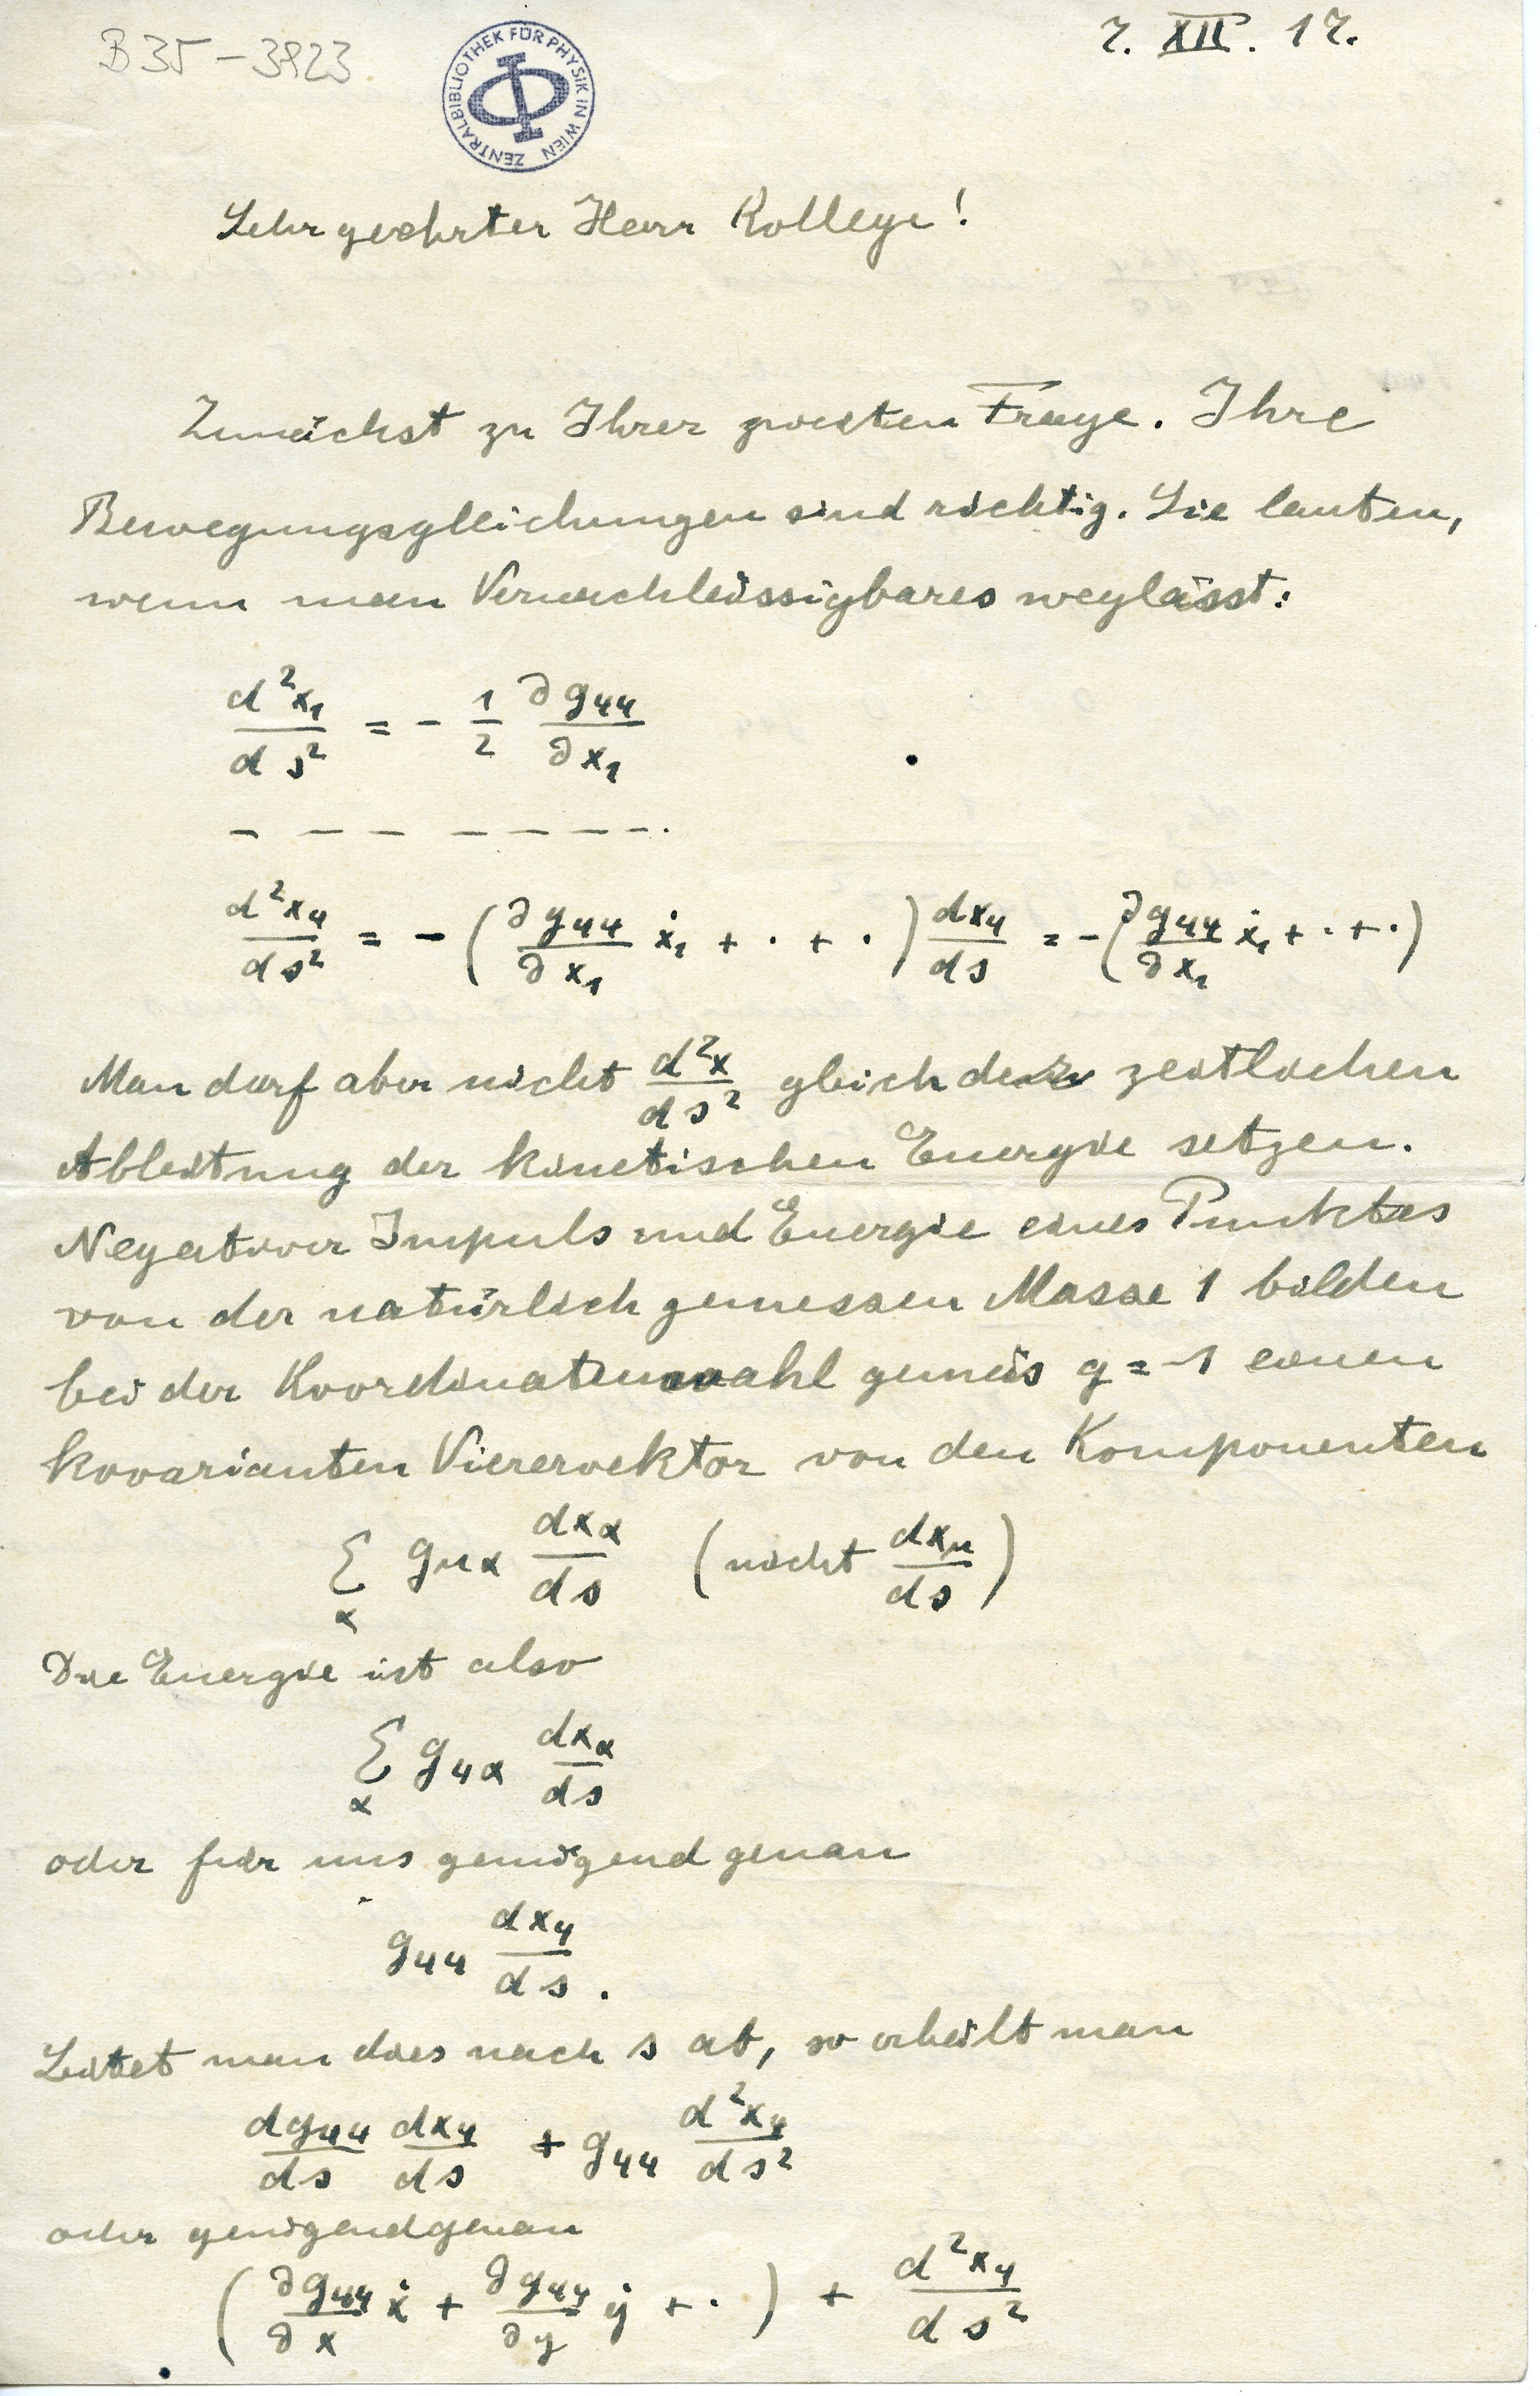 B35-3823
7. XII. 17.
ZENTRALBIBLIOTHEK FÜR PHYSIK IN WIEN
Sehr geehrter Herr Kollege!
Zunächst zu Ihrer zweiten Frage. Ihre
Bewegungsgleichungen sind richtig. Sie lauten,
wenn man Vernachlässigbares weglässt:
d²x₁/ds² = - 1/2 ∂g₄₄/∂x₁
— — — — — — — .
d²x₄/ds² = - (∂g₄₄/∂x₁ ẋ₁ + · + ·) dx₄/ds = - (∂g₄₄/∂x₁ ẋ₁ + · + ·)
Man darf aber nicht d²x/ds² gleich der zeitlichen
Ableitung der kinetischen Energie setzen.
Negativer Impuls und Energie eines Punktes
von der natürlich gemessen Masse 1 bilden
bei der Koordinatenwahl gemäs g = -1 einen
kovarianten Vierervektor von den Komponenten
∑α gμα dxα/ds (nicht dxμ/ds)
Die Energie ist also
∑α g₄α dxα/ds
oder für uns genügend genau
g₄₄ dx₄/ds.
Leitet man dies nach s ab, so erhält man
dg₄₄/ds dx₄/ds + g₄₄ d²x₄/ds²
oder genügend genau
(∂g₄₄/∂x ẋ + ∂g₄₄/∂y ẏ + ·) + d²x₄/ds²